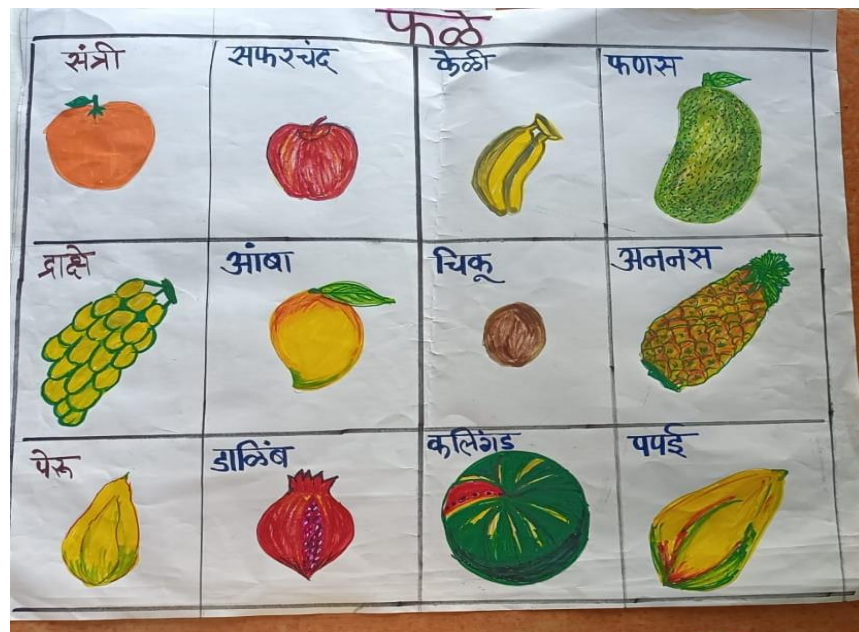 फळे
संत्री
सफरचंद
केळी
फणस
द्राक्षे
आंबा
चिकू
अननस
पेरू
डाळिंब
कलिंगड
पपई